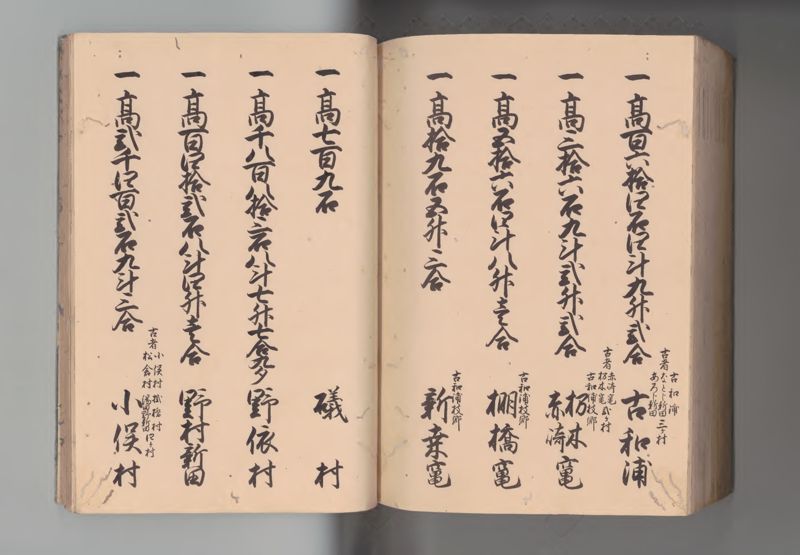 一高百六拾四石四斗九升弐合
古者
古和浦
三ヶ村
古和浦
一高三拾六石九斗弐升弐合
古者
赤崎竃
栃木竃
弐ヶ村
古和浦枝郷
栃木竃
赤崎
一高五拾六石四斗八升壱合
古和浦枝郷
棚橋竃
一高拾九石五升三合
古和浦枝郷
新桑竃
一高七百九石
礒村
一高千八百八拾三石八斗七升七合九夕
野依村
一高百四拾弐石八斗四升壱合
野村新田
一高弐千四百弐石九斗三合
古者
小俣村
松倉村
掛橋村
四ヶ村
小俣村